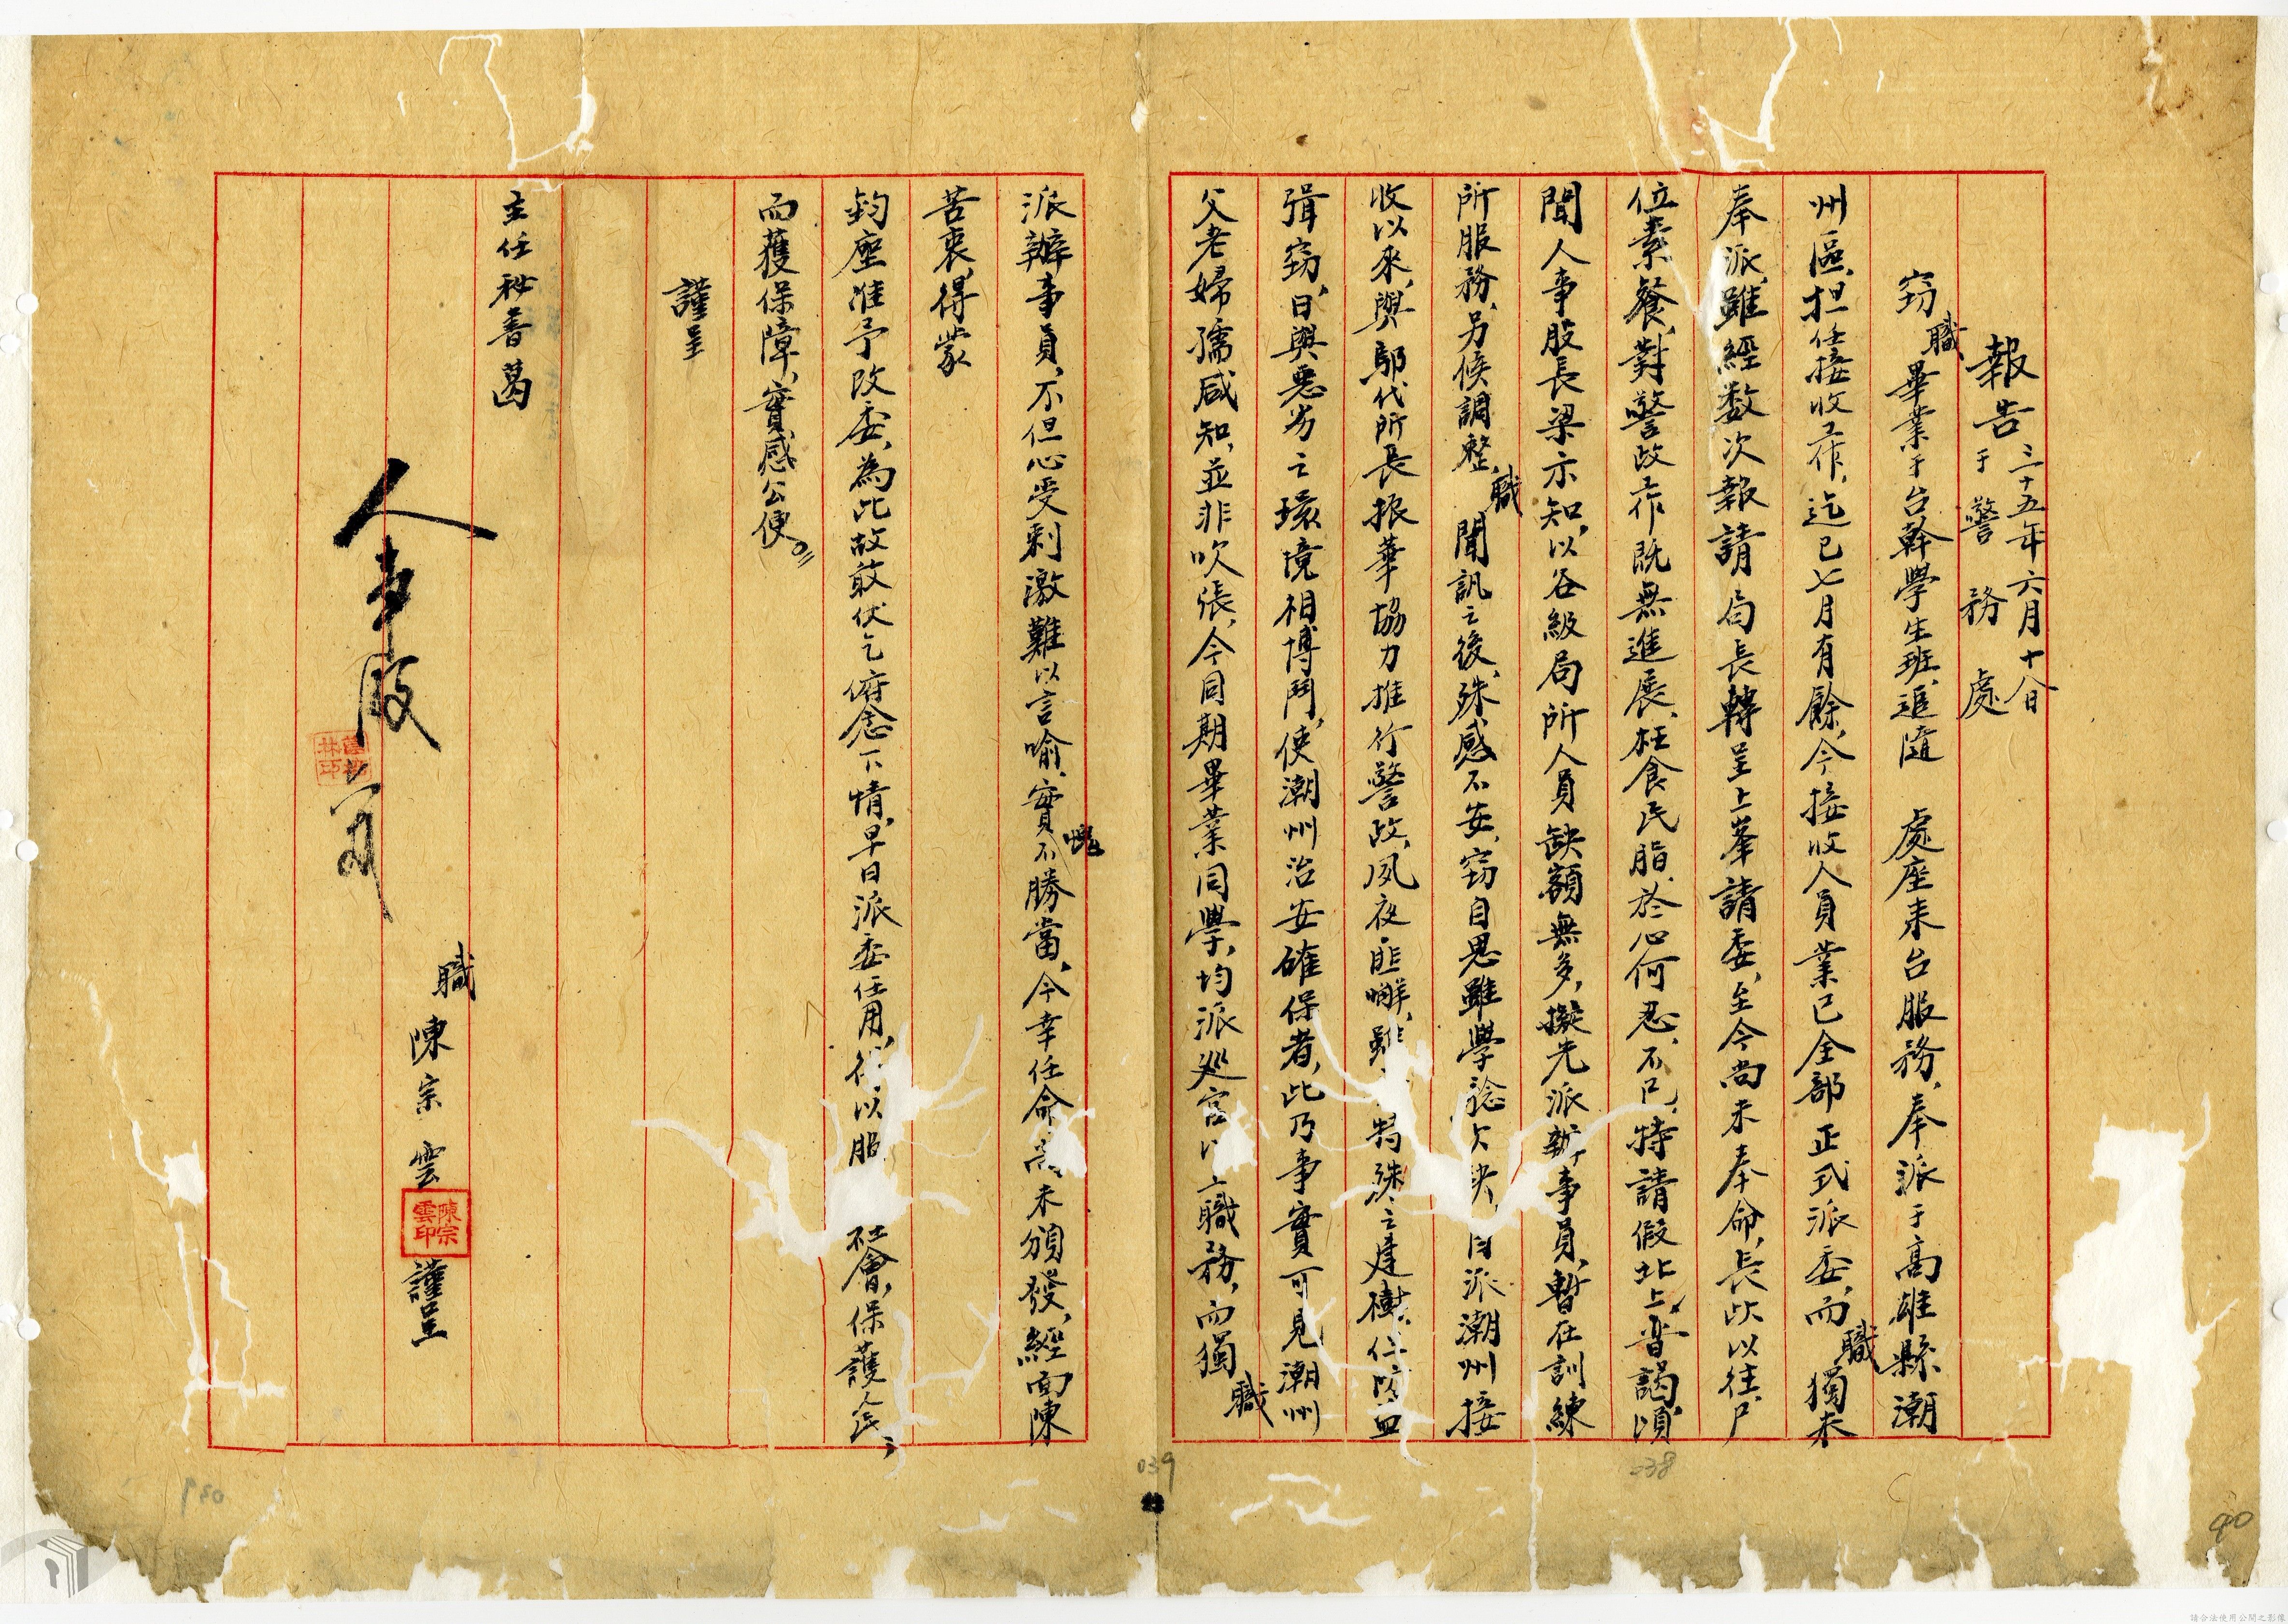 報告 三十五年六月十八日
于警務處
竊職畢業于台幹學生班、追隨 處座來台服務、奉派于高雄縣潮
州區、担任接收工作、迄已七月有餘、今接收人員業已全部正式派委、而職獨未
奉派、雖經数次報請局長轉呈上峯請委、至今尚未奉命、長此以往、尸
位素餐、對警政工作既無進展、枉食民脂、於心何忍、不已、特請假北上、晋謁、頃
聞人事股長梁示知、以各級局所人員缺額無多、擬先派辦事員、暫在訓練
所服務、另候調整、職聞訊之後、殊感不安、竊自思雖學諗欠缺、自派潮州接
收以來、與鄔代所長振華協力推行警政、夙夜匪懈、雖 特殊之建樹、但防盜
緝竊、日與惡劣之環境相博鬥、使潮州治安確保者、此乃事實可見、潮州
父老婦孺咸知、並非吹張、今同期畢業同學、均派巡官以上職務、而獨職
派辦事員、不但心受刺激難以言喻、實愧不勝當、今幸任命尚未頒發、經面陳
苦衷、得蒙
鈞座准予改委、為此故敢伏乞俯念下情、早日派委任用、得以服 社會、保護人民、
而獲保障、實感公便。
謹呈
主任秘書葛
人事股
職陳宗雲 謹呈
陳宗雲印
038
039
040
請合法使用公開之影像